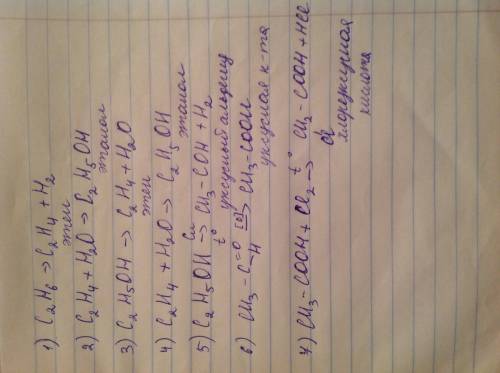 1) C2H6 → C2H4 + H2
этен
2) C2H4 + H2O → C2H5OH
этанол
3) C2H5OH → C2H4 + H2O
этен
4) C2H4 + H2O → C2H5OH
этанол
5) C2H5OH Cu → t° CH3-COH + H2
уксусный альдегид
6) CH3-C=O -H [O] → CH3-COOH
уксусная к-та
7) CH3-COOH + Cl2 t° → CH2-COOH + HCl
Cl
хлоруксусная
кислота